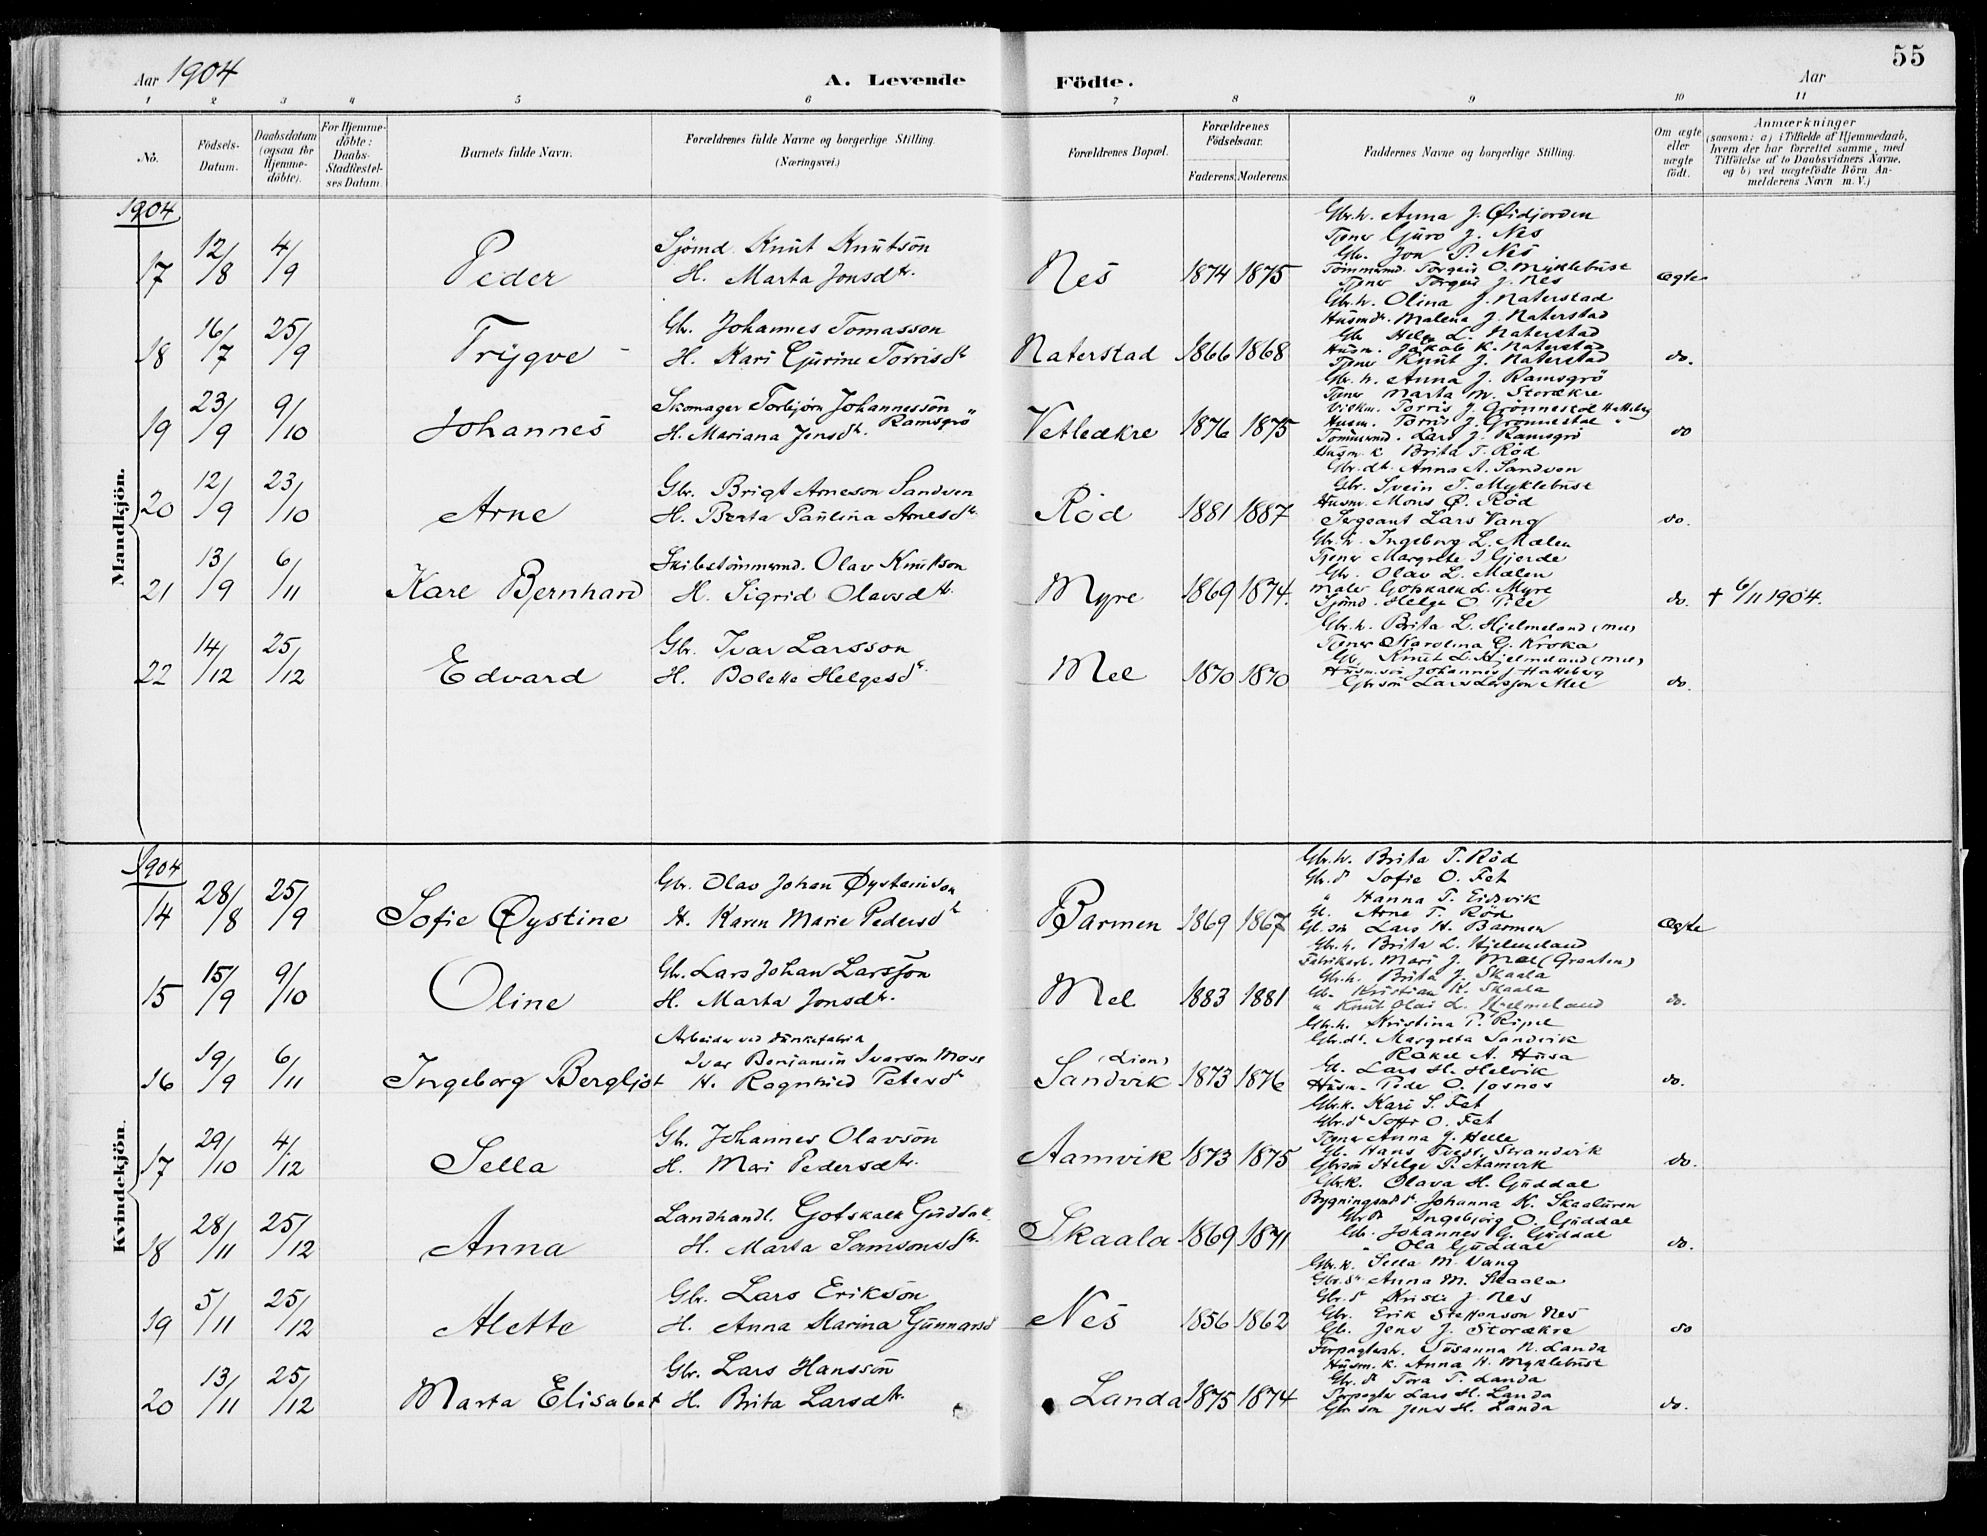 55
Aar 1904
A. Levende Födte.
Aar
1 2 3 4 5 6 7 8 9 10 11
No.
Födsels-Datum.
Daabsdatum (ogsaa for Hjemme-döbte).
For Hjemme-döbte: Daabs-Stadfæstel-ses Datum
Barnets fulde Navn.
Forældrenes fulde Navne og borgerlige Stilling. (Næringsvei.)
Forældrenes Bopæl.
Forældrenes Födselsaar.
Faderens. Moderens.
Faddernes Navne og borgerlige Stilling.
Om ægte eller uægte födt.
Anmærkninger
(saasom: a) i Tilfælde af Hjemmedaab, hvem der har forrettet samme, med Tilföielse af to Daabsvidners Navne, og b) ved uægtefödte Börn An-melderens Navn m. V.)
Mandkjön.
1904
17 12/8 4/9 Peder
Sjömd. Knut Knutson
H. Marta Jonsdtr.
Nes 1874 1875
Gbr.h. Anna J. Øidjorden
Tjener Guro J. Nes
Gbr. Jon P. Nes
Tömmermd. Torgeis O. Myklebust
Tjener Torgeis J. Nes
ægte
18 16/7 25/9 Trygve
Gbr. Johannes Tomasson
H. Kari Gurine Torrisdt
Naterstad 1866 1868
Gbr.h. Olina J. Naterstad
Husmdt. Malena J. Naterstad
Gbr. Helge L. Naterstad
Husm. Jakob K. Naterstad
Tjener Knut J. Naterstad
do.
19 23/9 9/10 Johannes
Skomager Torbjörn Johannesson Ramsgrö
H. Mariana Jensdt.
Vetleækre 1876 1875
Gbr.h. Anna J. Ramsgrö
Tjener Marta M. Storækre
Torris J. Grönnestad Hatteberg
Husm. Torris J. Grönnestad
Tömmermd. Lars J. Ramsgrö
do
20 12/9 23/10 Arne
Gbr. Brigt Arneson Sandven
H. Berta Paulina Arnesdt.
Röd 1881 1887
Husm.k. Brita T. Röd
Gbr.dt. Anna A. Sandven
Gbr. Svein T. Myklebust
Husm. Mons Ø. Röd
Sergeant Lars Vang
do.
21 13/9 6/11 Kare Bernhard
Skibstömmermd. Olav Knutson
H. Sigrid Olavsdtr.
Myre 1869 1874.
Gbr.h. Ingeborg L. Mælen
Tjener Margrete J Gjerde
Gbr. Olav L. Mælen
Maler Gotskalk L. Myre
Sjömd. Helge O. Pile
do. † 6/11 1904.
22 14/12 25/12 Edvard
Gbr. Ivar Larsson
H. Bolette Helgesdt.
Mel 1870 1870
Gbr.h. Brita L. Hjelmeland (Mel)
Tjener Karolina G. Kroka
Gbr. Knut L. Hjelmeland (Mel)
Husm.sön Johannes J Hatteberg
Gbrsön Lars Larsson Mel
do.
Kvindekjön.
1904
14 28/8 25/9 Sofie Øystine
Gbr. Olav Johan Øysteinson
H. Karen Marie Pedersdt
Barmen 1869 1867
Gbr.h. Brita T. Röd
Gbr.d Sofie O. Fet
" Hanna T. Eidsvik
Gl. Arne T. Röd
Gl. sön Lars H. Barmen
Ægte
15 15/9 9/10 Oline
Gbr. Lars Johan Larsson
H. Marta Jonsdtr.
Mel 1883 1881
Gbr.h. Brita L. Hjelmeland
Fabrikarb. Mari J. Mæl (Graaten)
Gbr.h. Brita J. Skaala
Gbr. Kristian K. Skaala
" Knut Olai L. Hjelmeland
do.
16 19/9 6/11 Ingeborg Bergljot
Arbeider ved
Ivar Benjamin Ivarson Moss
H. Ragnhild Petersdt
(Lion)
Sandvik 1873 1876
Gbr.h. Kristina P. Ripel
Gbr.dt. Margreta Sandvik
Rakel A. Husa
Gl. Lars H. Helvik
Husm. Peder O. Josnes
do.
17 29/10 4/12 Sella
Gbr. Johannes Olavson
H. Mari Pedersdtr.
Aamvik 1873 1875
Gbr.k. Kari S. Fet
Gbr.dt Soffi O. Fet
Tjener Anna J. Helle
Gl. Hans Tvedt, Strandvik
Gbrsön Helge P. Aamvik
do.
18 28/11 25/12 Anna
Landhandl. Gotskalk Guddal
H. Marta Samsonsdtr.
Skaala 1869 1871
Gbr.k. Olava H. Guddal
Bygningsmdsdt. Johanna K. Skaaluren
Gbr.dt Ingebjörg O. Guddal
Gbr. Johannes G. Guddal
" Ola Guddal
do.
19 5/11 25/12 Alette
Gbr. Lars Erikson
H. Anna Marina Gunnarsd
Nes 1856 1862
Gbr.k. Sella M. Vang
Gbr.dt Anna M. Skaala
Gbr.dt Kristi J. Nes
Gbr. Erik Steffenson Nes
Gbr. Jens J. Storækre
do
20 13/11 25/12 Marta Elisabet
Gbr. Lars Hansson
H. Brita Larsdtr.
Landa 1875 1874
Forpagterh. Susanna N. Landa
Husm.k. Anna H. Myklebust
Gbr.dt Tora T. Landa
Forpagter Lars H. Landa
Gbr sön Jens H. Landa
do.